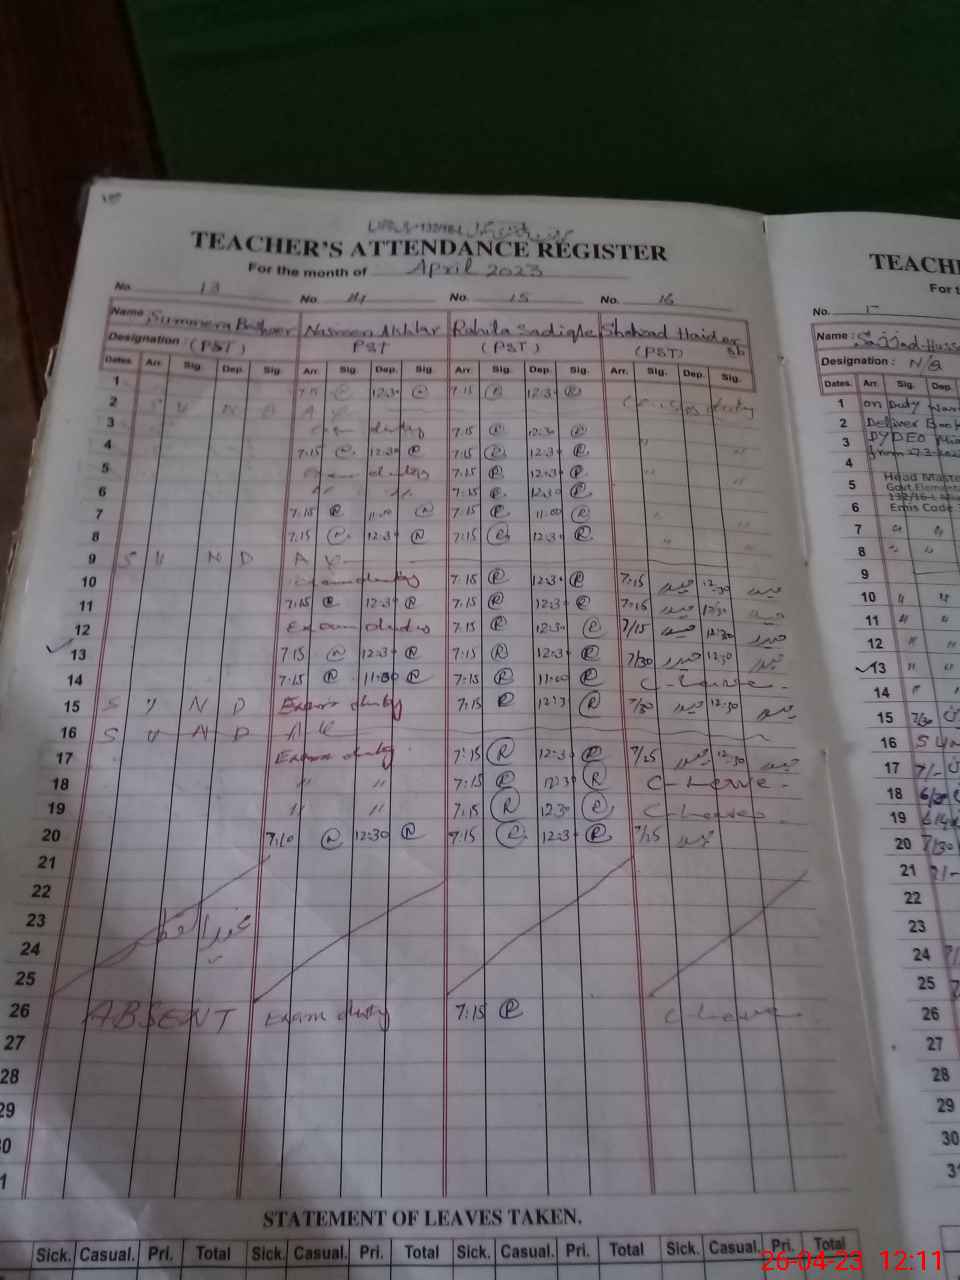 TEACHER'S ATTENDANCE REGISTER
For the month of April 2023
No. 13 No. 14 No. 15 No. 16
Name Summera Basheer Nasreen Akhtar Rahila Sadiqle Shahzad Haider
Designation : (PST) PST (PST) (PST)
Dates. Arr. Sig. Dep. Sig. Arr. Sig. Dep. Sig. Arr. Sig. Dep. Sig. Arr. Sig. Dep. Sig.
1 7:15 12:30 7:15 R 12:30 R
2 S U N D A Y duty
3 duty 7:15 R 12:30 R "
4 7:15 12:30 R 7:15 R 12:30 R "
5 Exam duty 7:15 R 12:30 R " "
6 " " 7:15 R 12:30 R
7 7:15 R 11:00 R 7:15 R 11:00 R " "
8 7:15 R 12:30 R 7:15 R 12:30 R " "
9 S U N D A Y
10 Exam duty 7:15 R 12:30 R 7:15 حیدر 12:30 حیدر
11 7:15 R 12:30 R 7:15 R 12:30 R 7:15 حیدر 12:30 حیدر
12 Exam duty 7:15 R 12:30 R 7/15 حیدر 12:30 حیدر
13 7:15 R 12:30 R 7:15 R 12:30 R 7/30 حیدر 12:30 حیدر
14 7:15 R 11:00 R 7:15 R 11:00 R C-Leave -
15 S U N D Exam duty 7:15 R 12:3 R 7/30 حیدر 12:30 حیدر
16 S U N D A Y
17 Exam duty 7:15 R 12:30 R 7/25 حیدر 12:30 حیدر
18 " " 7:15 R 12:30 R C-Leave -
19 " " 7:15 R 12:30 R C-Leave -
20 7:10 R 12:30 R 7:15 R 12:30 R 7/25 حیدر
21
22
23
24
25
26 ABSENT Exam duty 7:15 R C-Leave
27
28
29
30
31
STATEMENT OF LEAVES TAKEN.
Sick. Casual. Pri. Total Sick. Casual. Pri. Total Sick. Casual. Pri. Total Sick. Casual. Pri. Total
TEACH
For t
No.
Name : Sajjad Huss
Designation : N/Q
Dates. Arr. Sig. Dep.
1 on Duty
2 Deliver Book
3 DYDEO
4 from
5 Head Maste
Govt. Element
132/16-L
6 Emis Code
7 " "
8 " "
9
10 " "
11 " "
12 " "
13 " "
14 " "
15 7/30
16 SUN
17 7/-
18 6/30
19
20 7/30
21 7/-
22
23
24
25
26
27
28
29
30
26-04-23 12:11